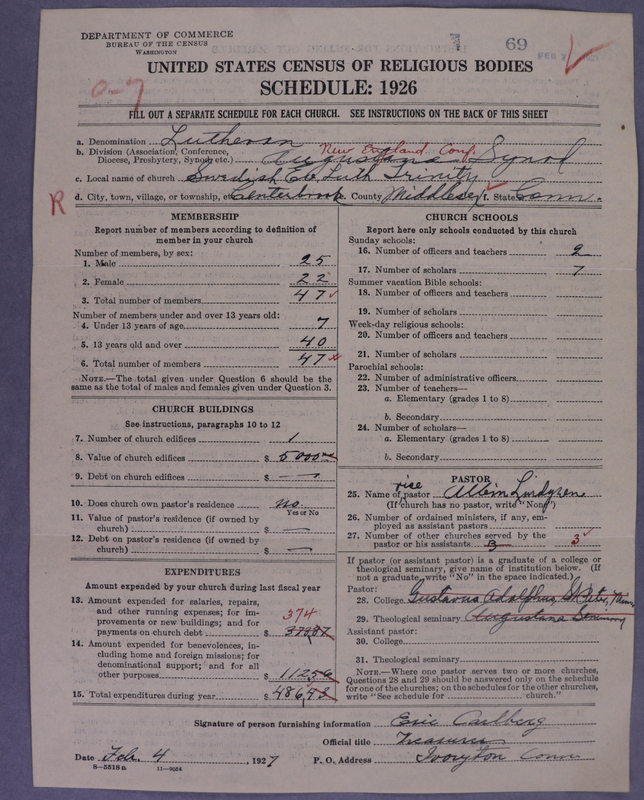 DEPARTMENT OF COMMERCE
BUREAU OF THE CENSUS
WASHINGTON
69
UNITED STATES CENSUS OF RELIGIOUS BODIES
SCHEDULE: 1926
FILL OUT A SEPARATE SCHEDULE FOR EACH CHURCH. SEE INSTRUCTIONS ON THE BACK OF THIS SHEET
a. Denomination Lutheran
New England Conf.
b. Division (Association, Conference
Diocese, Presbytery, Synod, etc.) Augustana Synod
c. Local name of church Swedish Ev. Luth Trinity
R d. City, town, village, or township, etc. Centerbrook e. County Middlesex f. State Conn.
MEMBERSHIP
Report number of members according to definition of
member in your church
Number of members, by sex:
1. Male 25
2. Female 22
3. Total number of members 47
Number of members under and over 13 years old:
4. Under 13 years of age 7
5. 13 years old and over 40
6. Total number of members 47
NOTE.—The total given under Question 6 should be the
same as the total of males and females given under Question 3.
CHURCH BUILDINGS
See instructions, paragraphs 10 to 12
7. Number of church edifices 1
8. Value of church edifices $ 5000
9. Debt on church edifices $ —
10. Does church own pastor's residence? No.
Yes or No
11. Value of pastor's residence (if owned by
church) $
12. Debt on pastor's residence (if owned by
church) $ —
EXPENDITURES
Amount expended by church during last fiscal year
13. Amount expended for salaries, repairs,
and other running expenses; for im-
provements or new buildings; and for 374
payments on church debt $ 373.87
14. Amount expended for benevolences, in-
cluding home and foreign missions; for
denominational support; and for all
other purposes $ 112.56
15. Total expenditures during year $ 486.43
CHURCH SCHOOLS
Report here only schools conducted by this church
Sunday schools:
16. Number of officers and teachers 2
17. Number of scholars 7
Summer vacation Bible schools:
18. Number of officers and teachers
19. Number of scholars
Week-day religious schools:
20. Number of officers and teachers
21. Number of scholars
Parochial schools:
22. Number of administrative officers
23. Number of teachers—
a. Elementary (grades 1 to 8)
b. Secondary
24. Number of scholars—
a. Elementary (grades 1 to 8)
b. Secondary
PASTOR
25. Name of pastor Albin Lindgren
(If church has no pastor, write "None")
26. Number of ordained ministers, if any, em-
ployed as assistant pastors
27. Number of other churches served by the
pastor or his assistants 3 3
If pastor (or assistant pastor) is a graduate of a college or
theological seminary, give name of institution below. (If
not a graduate, write "No" in the space indicated.)
Pastor:
28. College Gustavus Adolphus, St. Peter, Minn
29. Theological seminary Augustana Seminary
Assistant pastor:
30. College
31. Theological seminary
NOTE.—Where one pastor serves two or more churches,
Questions 28 and 29 should be answered only on the schedule
for one of the churches; on the schedules for the other churches,
write "See schedule for church."
Signature of person furnishing information Eric Carlberg
Official title Treasurer
Date Feb. 4, 1927 P. O. Address Ivoryton Conn
8—5518a 11—9684